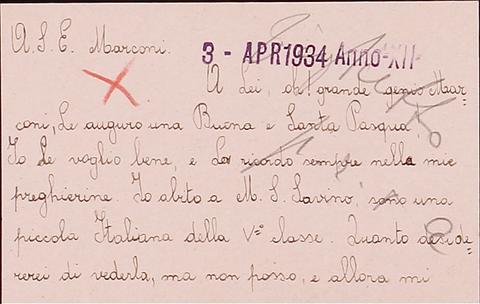 A. S. E. Marconi.
3 - APR 1934 Anno-XII
A Lei, oh! grande genio Mar-
coni, Le auguro una Buona e Santa Pasqua.
Io Le voglio bene, e La ricordo sempre nella mie
preghierine. Io abito a M. S. Savino, sono una
piccola Italiana della Vª classe. Quanto deside-
rerei di vederla, ma non posso, e allora mi